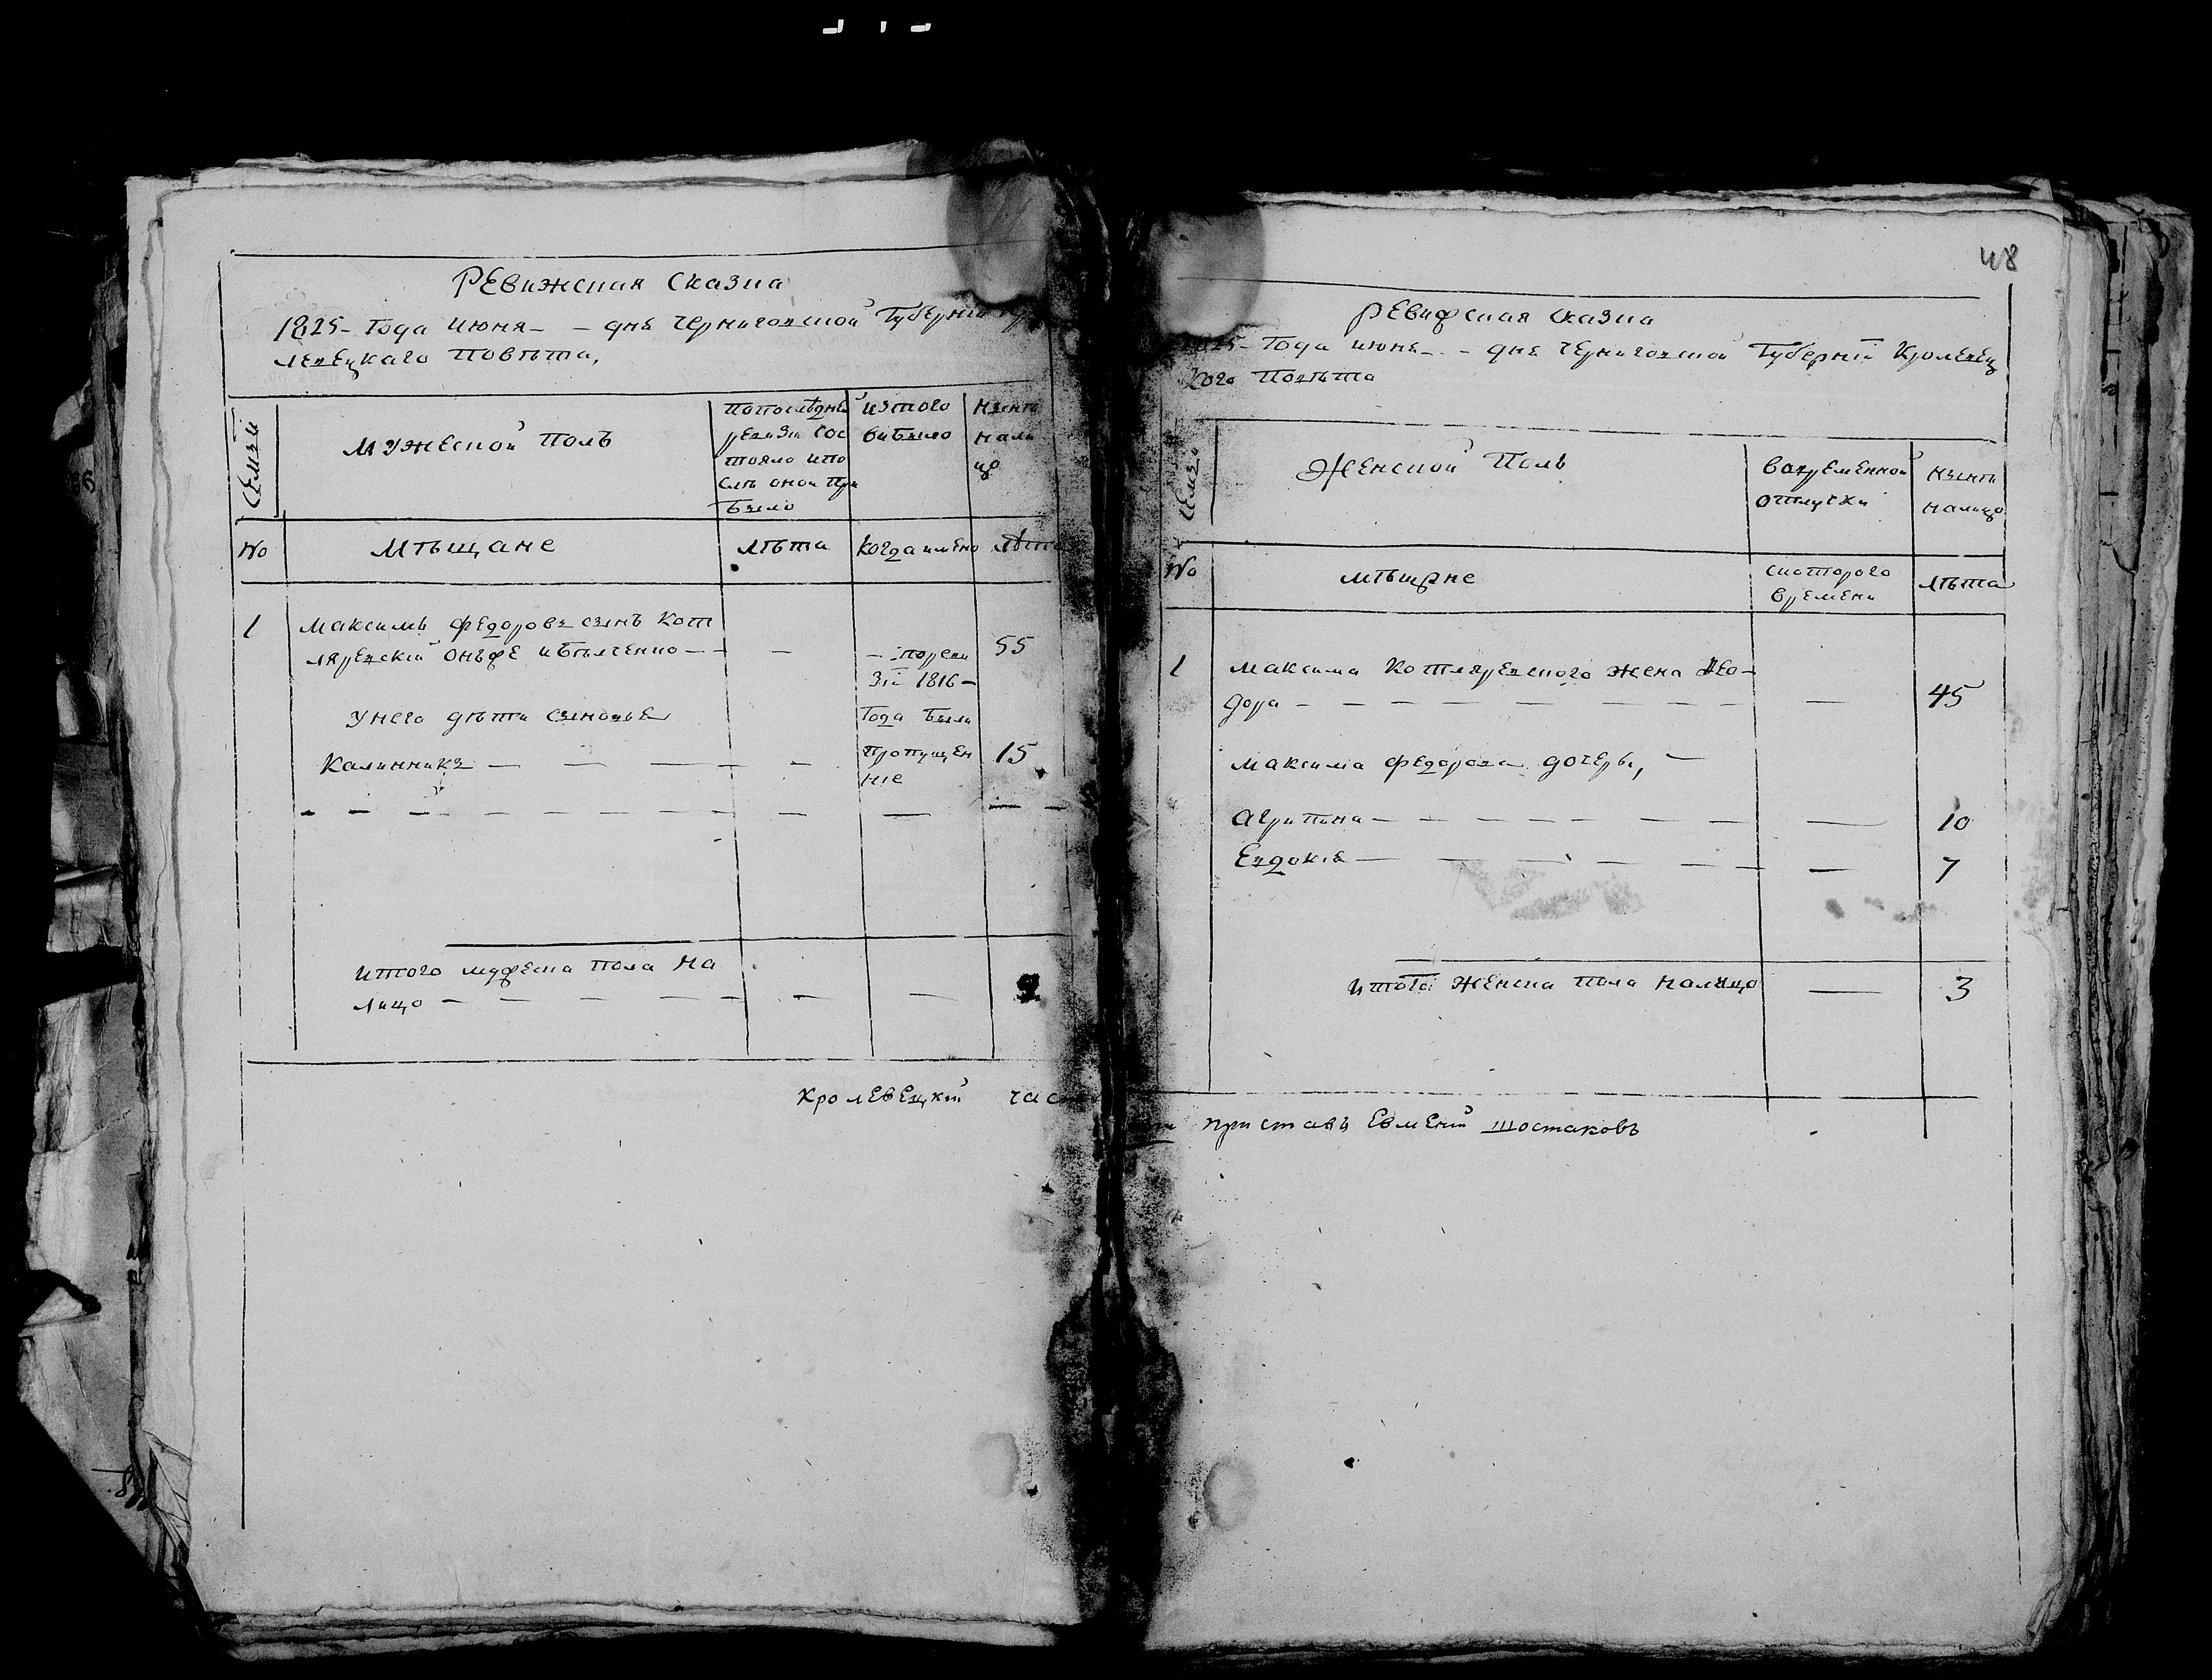 РЕвижсная Сказка
1825- Года июня- - дня Черниговской Губерніи Кро
левецкаго Повѣта,
Семьи
Мужеской Полъ
попослѣдней
ревизіи сос
тояло ипо
слѣ оной при
было
изтого
выбыло
Нынѣ
нали
цо
No
Мѣщане
лѣта
когда имено
лѣта
1
Максимъ Федоровъ сынъ Кот
ляревскій онъже
55
- пореви
зіи 1816-
Унего дѣти сыновье
Года были
Калинникъ
пропущен
ніе
15
итого мужеска пола На
лицо
2
Кролевецкій час
48
РЕвижсная Сказка
1825- Года июня - дня Черниговской Губерніи Кролевец
кого Повѣта
Семьи
Женской Полъ
Вовременной
отлучки
Нынѣ
налицо
No
мѣщане
скоторого
времени
лѣта
1
Максима Котляревского жена Фео-
дора
45
Максима Федорова дочери,
Агрипина
10
Евдокія
7
Итого Женска пола Налицо
3
приставъ Евменій Шостаковъ